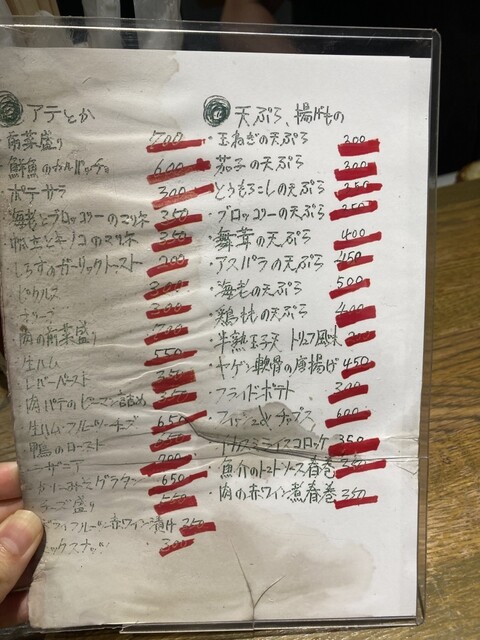 アテとか
前菜盛り 700
鮮魚のカルパッチョ 600
ポテサラ 300
海老とブロッコリーのマリネ 350
キノコのマリネ 350
しらすのガーリックトースト 200
ピクルス 300
オリーブ 300
肉の前菜盛り 700
生ハム 550
レバーペースト 350
肉パテのピーマン詰め 350
生ハム・フルーツ・チーズ 650
鴨のロースト
700
グラタン 650
チーズ盛り
ドライフルーツ赤ワイン漬け 350
ミックスナッツ 300
天ぷら、揚げもの
・玉ねぎの天ぷら 200
・茄子の天ぷら 300
・とうもろこしの天ぷら 350
・ブロッコリーの天ぷら 350
・舞茸の天ぷら 400
・アスパラの天ぷら 450
・海老の天ぷら 500
・鶏ももの天ぷら 400
・半熟玉子天 トリュフ風味
・ヤゲン軟骨の唐揚げ 450
・フライドポテト 300
・フィッシュ&チップス 600
ライスコロッケ 350
・魚介のトマトソース春巻
・肉の赤ワイン煮春巻 350